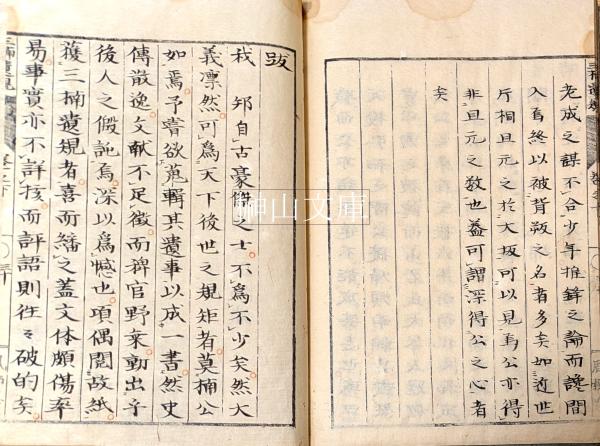 老成之謀不合少年推鋒之論而讒間
入焉終以被背叛之名者多矣如近世
片桐且元之於大坂可以見焉公亦得
非且元之数也益可謂深得公之心者
矣
跋
我邦自古豪傑之士不為不少矣然大
義凛然可為天下後世之規矩者莫楠公
如焉予嘗欲蒐輯其遺事以成一書然史
傳散逸文献不足徴而稗官野乗動出乎
後人之假託焉深以為憾也項偶閲故紙
獲三楠遺規者喜而繙之蓋文体頗傷率
易事實亦不詳核而評語則往々破的矣
三楠遺規
卷之下
榊山文庫